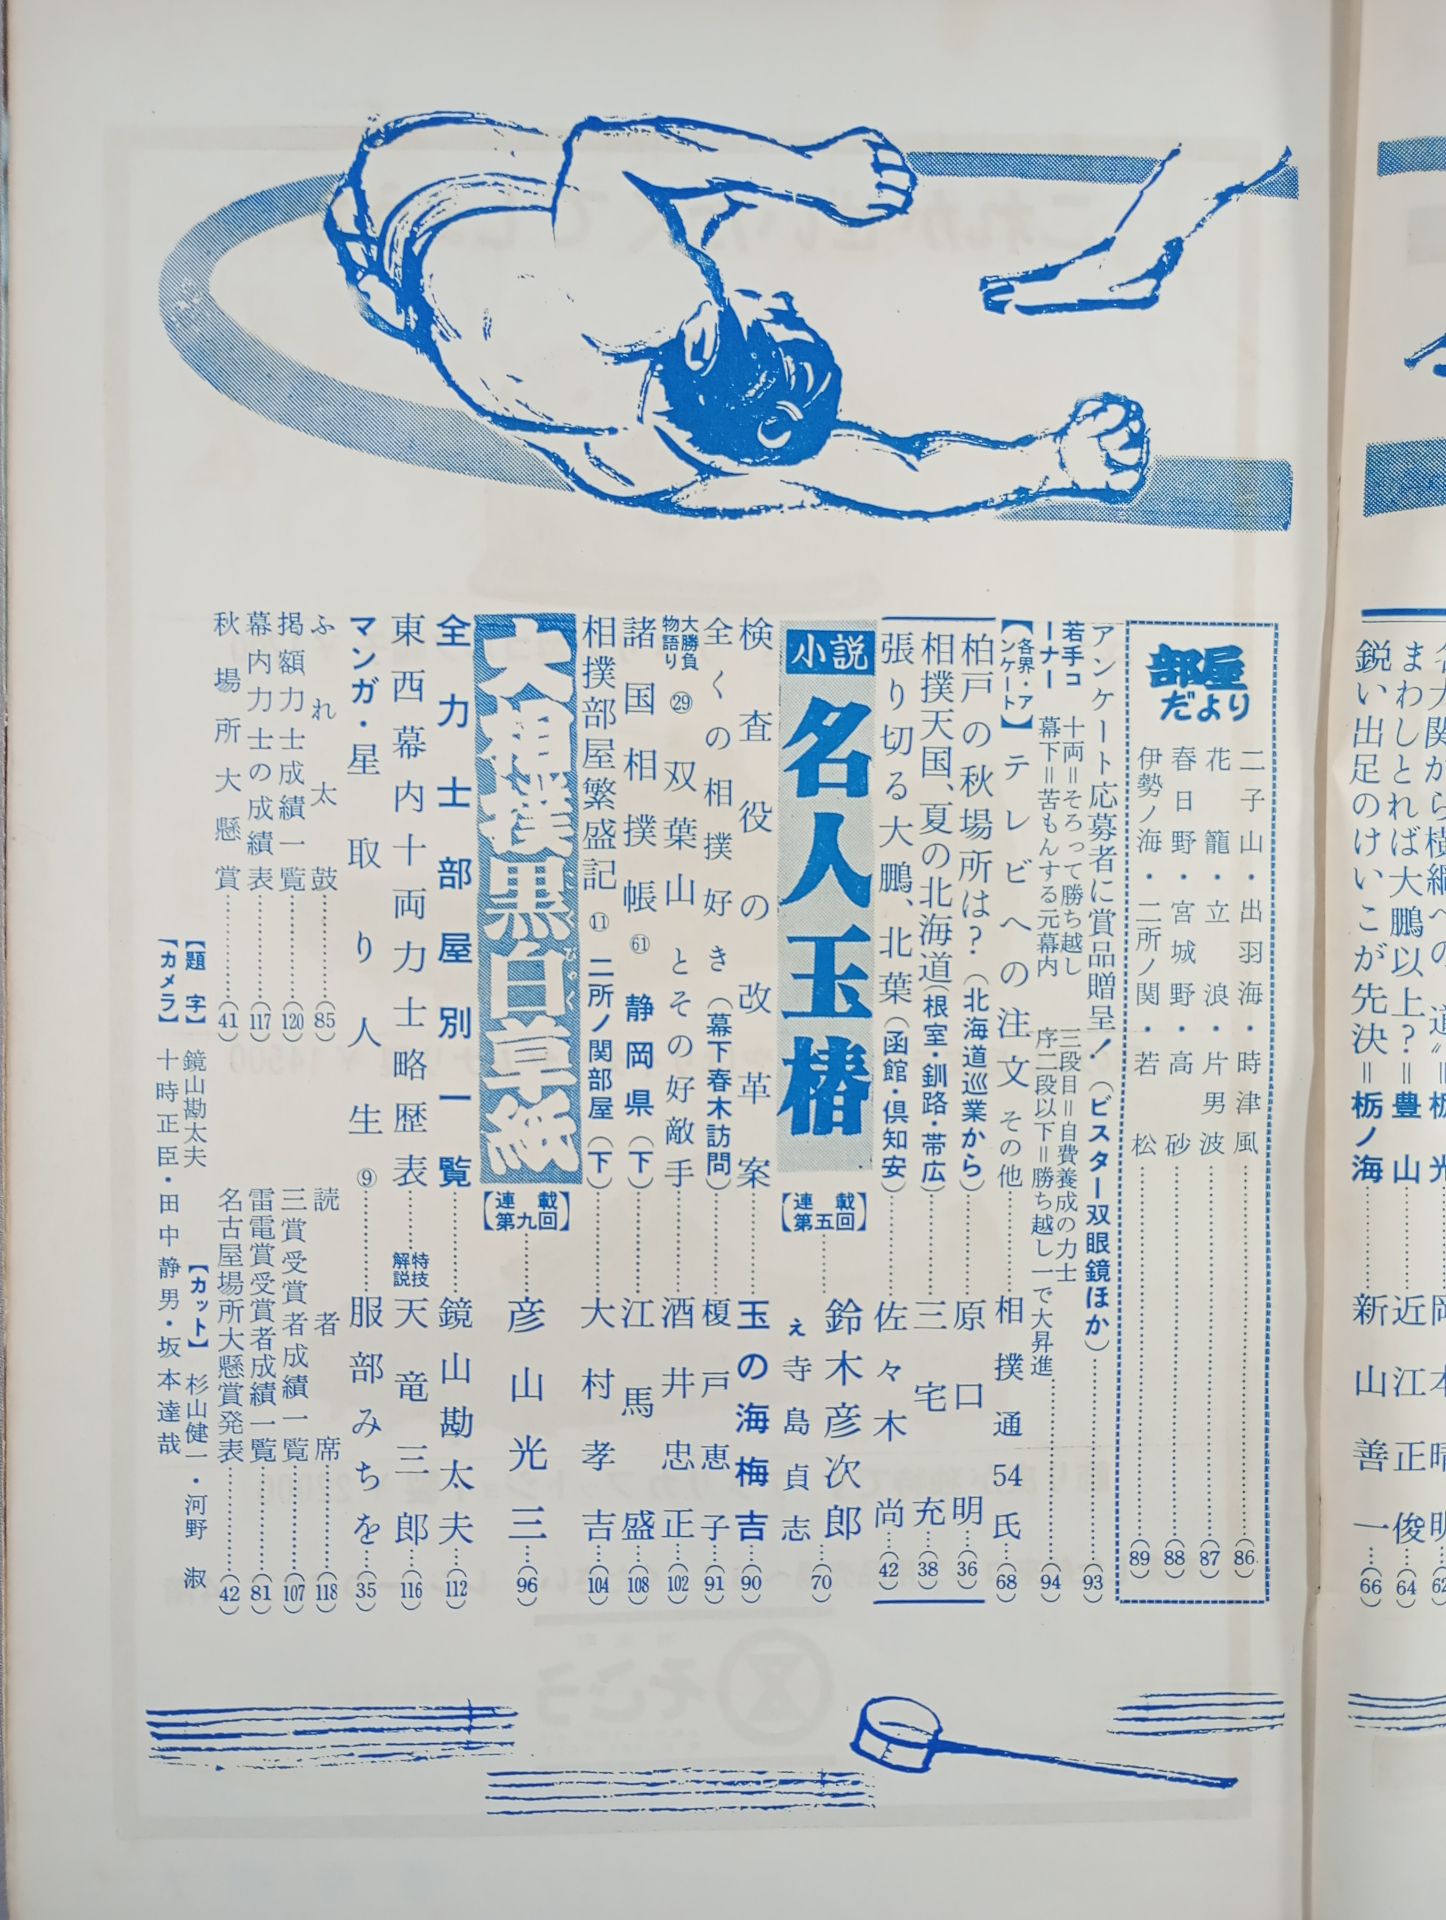 鋭い出足のけいこが先決＝栃ノ海……新山善一…(66)
まわしとれば大鵬以上？＝豊山……近江正俊…(64)
部屋だより
二子山・出羽海・時津風……(86)
花籠・立浪・片男波……(87)
春日野・宮城野・高砂……(88)
伊勢ノ海・二所ノ関・若松……(89)
アンケート応募者に賞品贈呈！（ビスター双眼鏡ほか）……(93)
若手コーナー 十両＝そろって勝ち越し 三段目＝自費養成の力士
幕下＝苦もんする元幕内 序二段以下＝勝ち越し一で大昇進……(94)
【各界・アンケート】テレビへの注文 その他……相撲通54氏…(68)
柏戸の秋場所は？（北海道巡業から）……原口明…(36)
相撲天国、夏の北海道（根室・釧路・帯広）……三宅充…(38)
張り切る大鵬、北葉（函館・倶知安）……佐々木尚…(42)
小説 名人玉椿【連載第五回】……鈴木彦次郎
え 寺島貞志…(70)
検査役の改革案……玉の海梅吉…(90)
全くの相撲好き（幕下春木訪問）……榎戸恵子…(91)
大勝負物語り ㉙ 双葉山とその好敵手……酒井忠正…(102)
諸国相撲帳 61 静岡県（下）……江馬盛…(108)
相撲部屋繁盛記 ⑪ 二所ノ関部屋（下）……大村孝吉…(104)
大相撲黒白草紙【連載第九回】……彦山光三…(96)
全力士部屋別一覧……鏡山勘太夫…(112)
東西幕内十両力士略歴表……特技解説 天竜三郎…(116)
マンガ・星取り人生 ⑨……服部みちを…(35)
ふれ太鼓……(85) 読者席……(118)
掲額力士成績一覧……(120) 三賞受賞者成績一覧……(107)
幕内力士の成績表……(117) 雷電賞受賞者成績一覧……(81)
秋場所大懸賞……(41) 名古屋場所大懸賞発表……(42)
【題字】鏡山勘太夫 【カット】杉山健一・河野淑
【カメラ】十時正臣・田中静男・坂本達哉